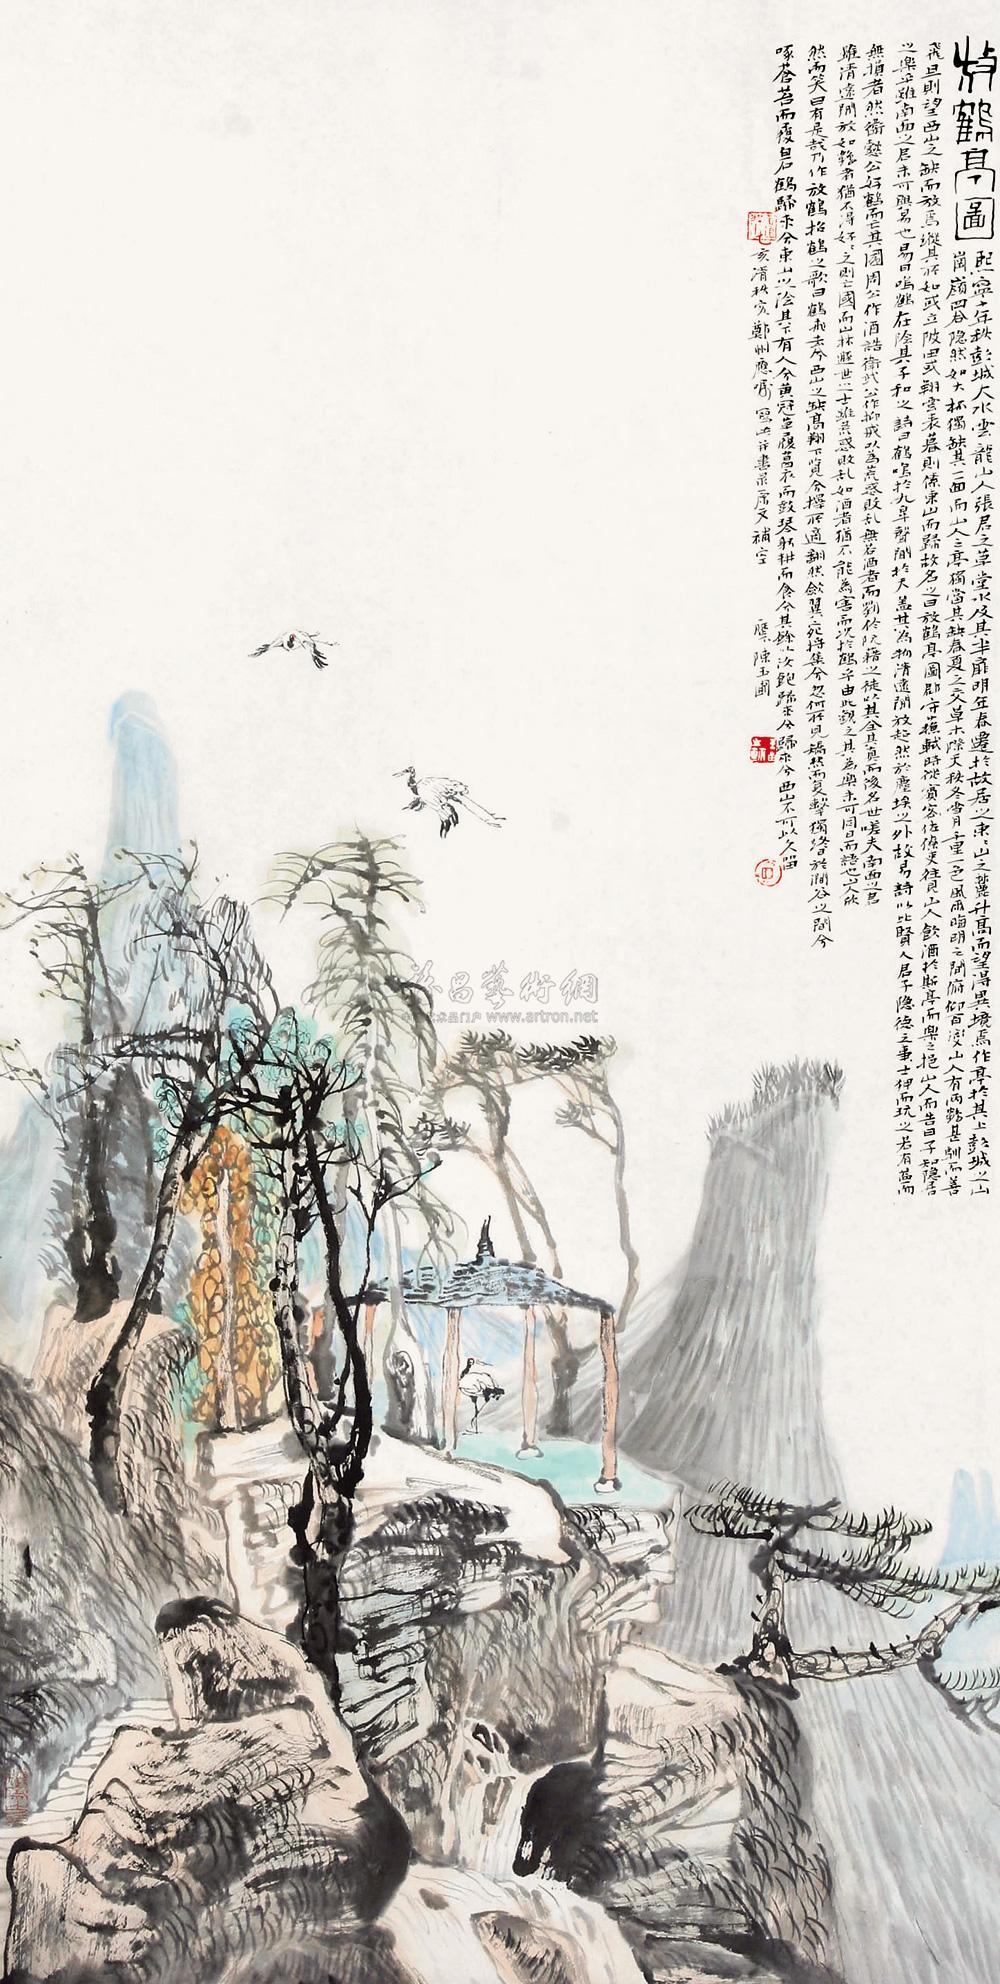 放鶴亭圖
熙寧十年秋彭城大水雲龍山人張君之草堂水及其半扉明年春遷於故居之東〻山之麓升高而望得異境焉作亭於其上彭城之山
崗嶺四合隐然如大杯獨缺其一面而山人之亭獨當其缺春夏之交草木際天秋冬雪月千里一色風雨晦明之間俯仰百變山人有兩鶴甚馴而善
飛旦則望西山之缺而放焉縱其所如或立陂田或翔雲表暮則傃東山而歸故名之曰放鶴亭圖郡守蘇軾時從賓客佐僚吏往見山人飲酒於斯亭而樂之挹山人而告曰子知隐居
之樂乎雖南面之君未可與易也易曰鳴鶴在陰其子和之詩曰鶴鳴於九皋聲聞於天蓋其為物清遠閒放超然於塵埃之外故易詩以比賢人君子隐德之士狎而玩之若有益而
無損者然衛懿公好鶴而亡其國周公作酒誥衛武公作抑戒以為荒惑敗乱無若酒者而劉伶阮籍之徒以其全其真而後名世嗟夫南面之君
雖清遠閒放如鶴者猶不得好〻之則亡國而山林遯世之士雖荒惑敗乱如酒者猶不能為害而况於鶴乎由此觀之其為樂未可同日而語也人欣
然而笑曰有是哉乃作放鶴招鶴之歌曰鶴飛去兮西山之缺高翔下覽兮擇所適翻然斂翼宛將集兮忽何所見矯然而復擊獨終日於澗谷之間兮
啄蒼苔而履白石鶴歸來兮東山之陰其下有人兮黄冠草履葛衣而鼓琴躬耕而食兮其餘以汝飽歸來兮歸來兮西山不可以久留
亥清秋客鄭州應邀寫此并書录原文補空
歷下陳玉圃
藝術網
www.artron.net